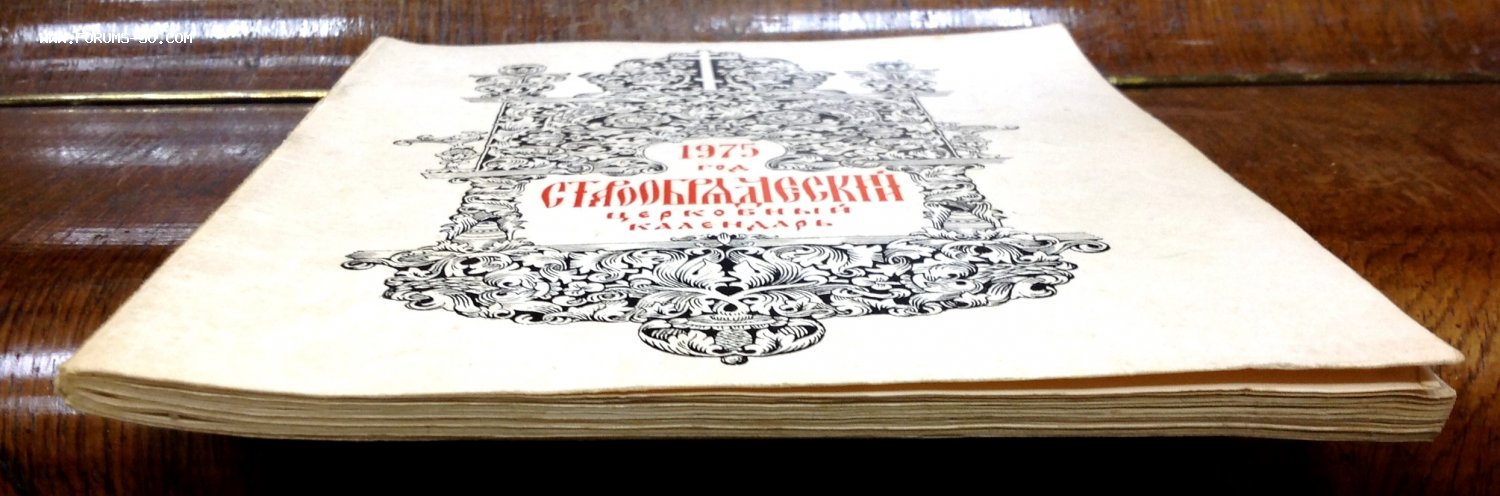 WWW.FORUMS-SU.COM
1975
ГОД
СТАРООБРЯДЧЕСКИЙ
ЦЕРКОВНЫЙ
КАЛЕНДАРЬ